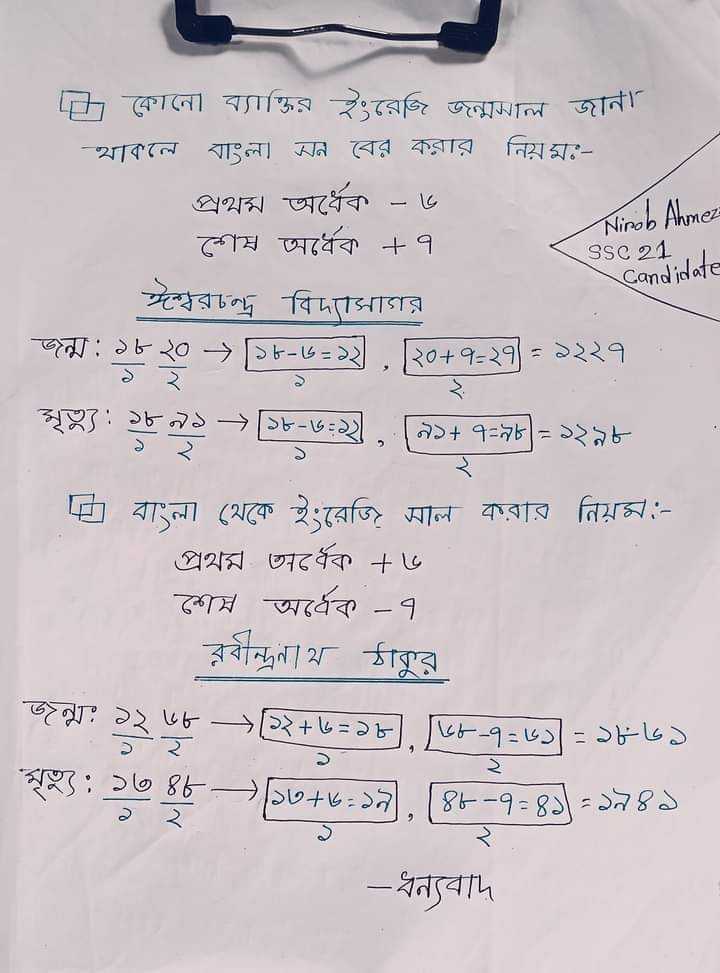 কোনো ব্যাক্তির ইংরেজি জন্মসাল জানা
থাকলে বাংলা সন বের করার নিয়মঃ-
প্রথম অর্ধেক - ৬
শেষ অর্ধেক + ৭
Nirob Ahmez
SSC 21
Candidate
ঈশ্বরচন্দ্র বিদ্যাসাগর
জন্ম : ১৮ ২০ → ১৮-৬=১২ , ২০+৭=২৭ = ১২২৭
১ ২ ১ ২
মৃত্যু : ১৮ ৯১ → ১৮-৬=১২ , ৯১+ ৭=৯৮ = ১২৯৮
১ ২ ১ ২
বাংলা থেকে ইংরেজি সাল করার নিয়ম:-
প্রথম অর্ধেক + ৬
শেষ অর্ধেক - ৭
রবীন্দ্রনাথ ঠাকুর
জন্মঃ ১২ ৬৮ → ১২+৬=১৮ , ৬৮-৭=৬১ = ১৮৬১
১ ২ ১ ২
মৃত্যু : ১৩ ৪৮ → ১৩+৬=১৯ , ৪৮-৭=৪১ = ১৯৪১
১ ২ ১ ২
- ধন্যবাদ